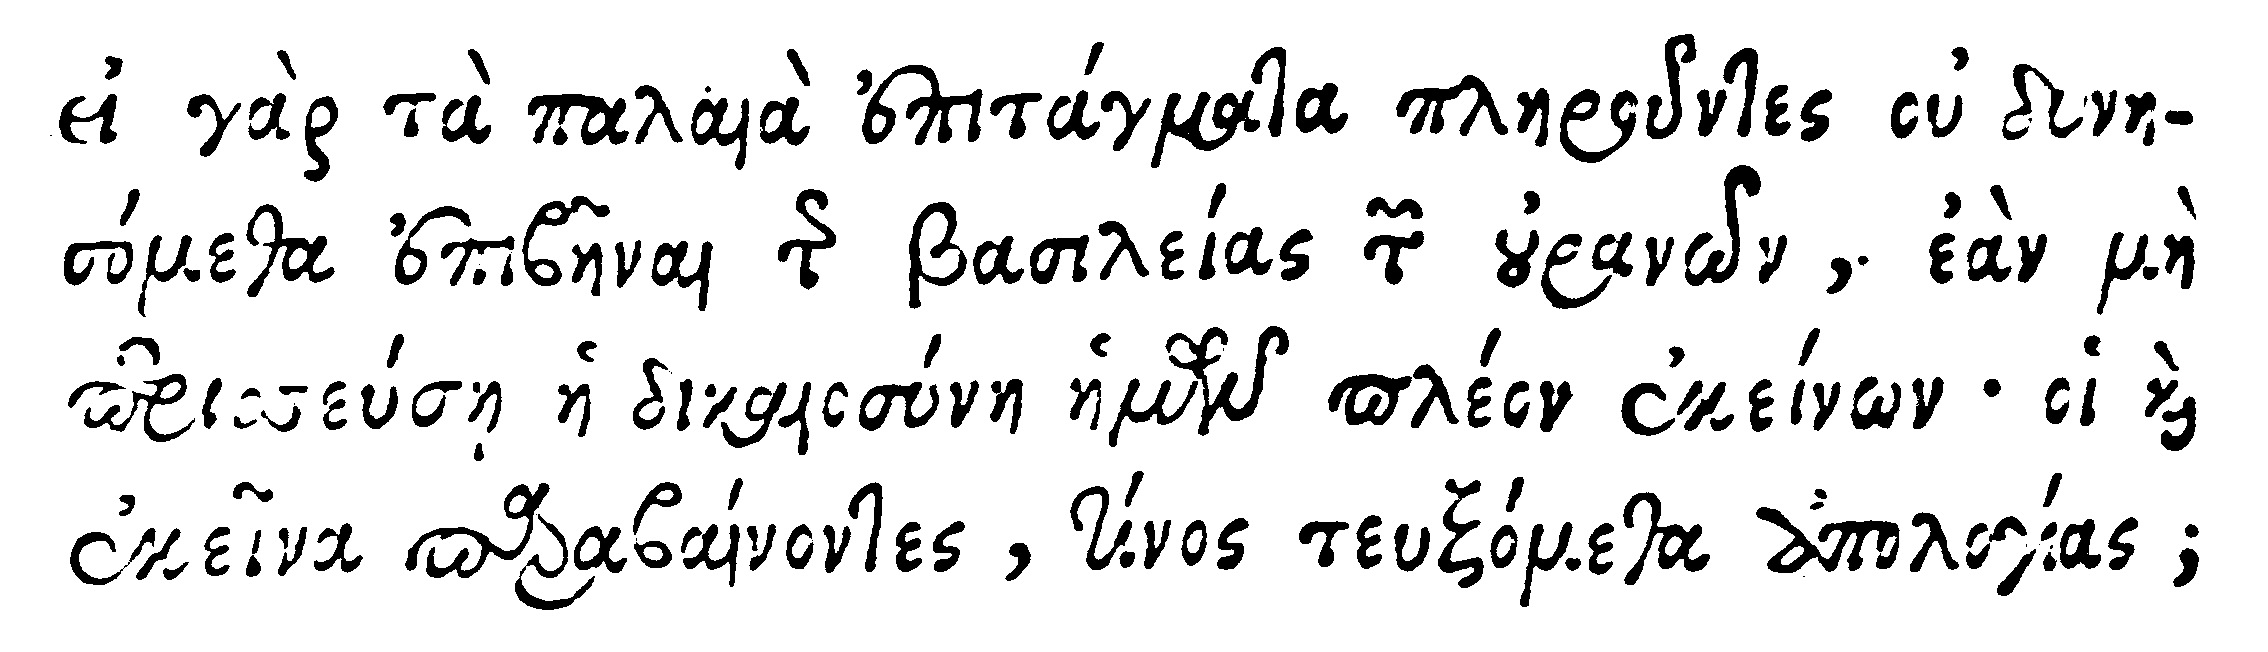 εἰ γὰρ τὰ παλαιὰ ἐπιτάγματα πληροῦντες οὐ δυνη-
σόμεθα ἐπιβῆναι τῆς βασιλείας τῶν οὐρανῶν, ἐὰν μὴ
περισσεύσῃ ἡ δικαιοσύνη ἡμῶν πλέον ἐκείνων· οἱ καὶ
ἐκεῖνα παραβαίνοντες, τίνος τευξόμεθα ἀπολογίας;